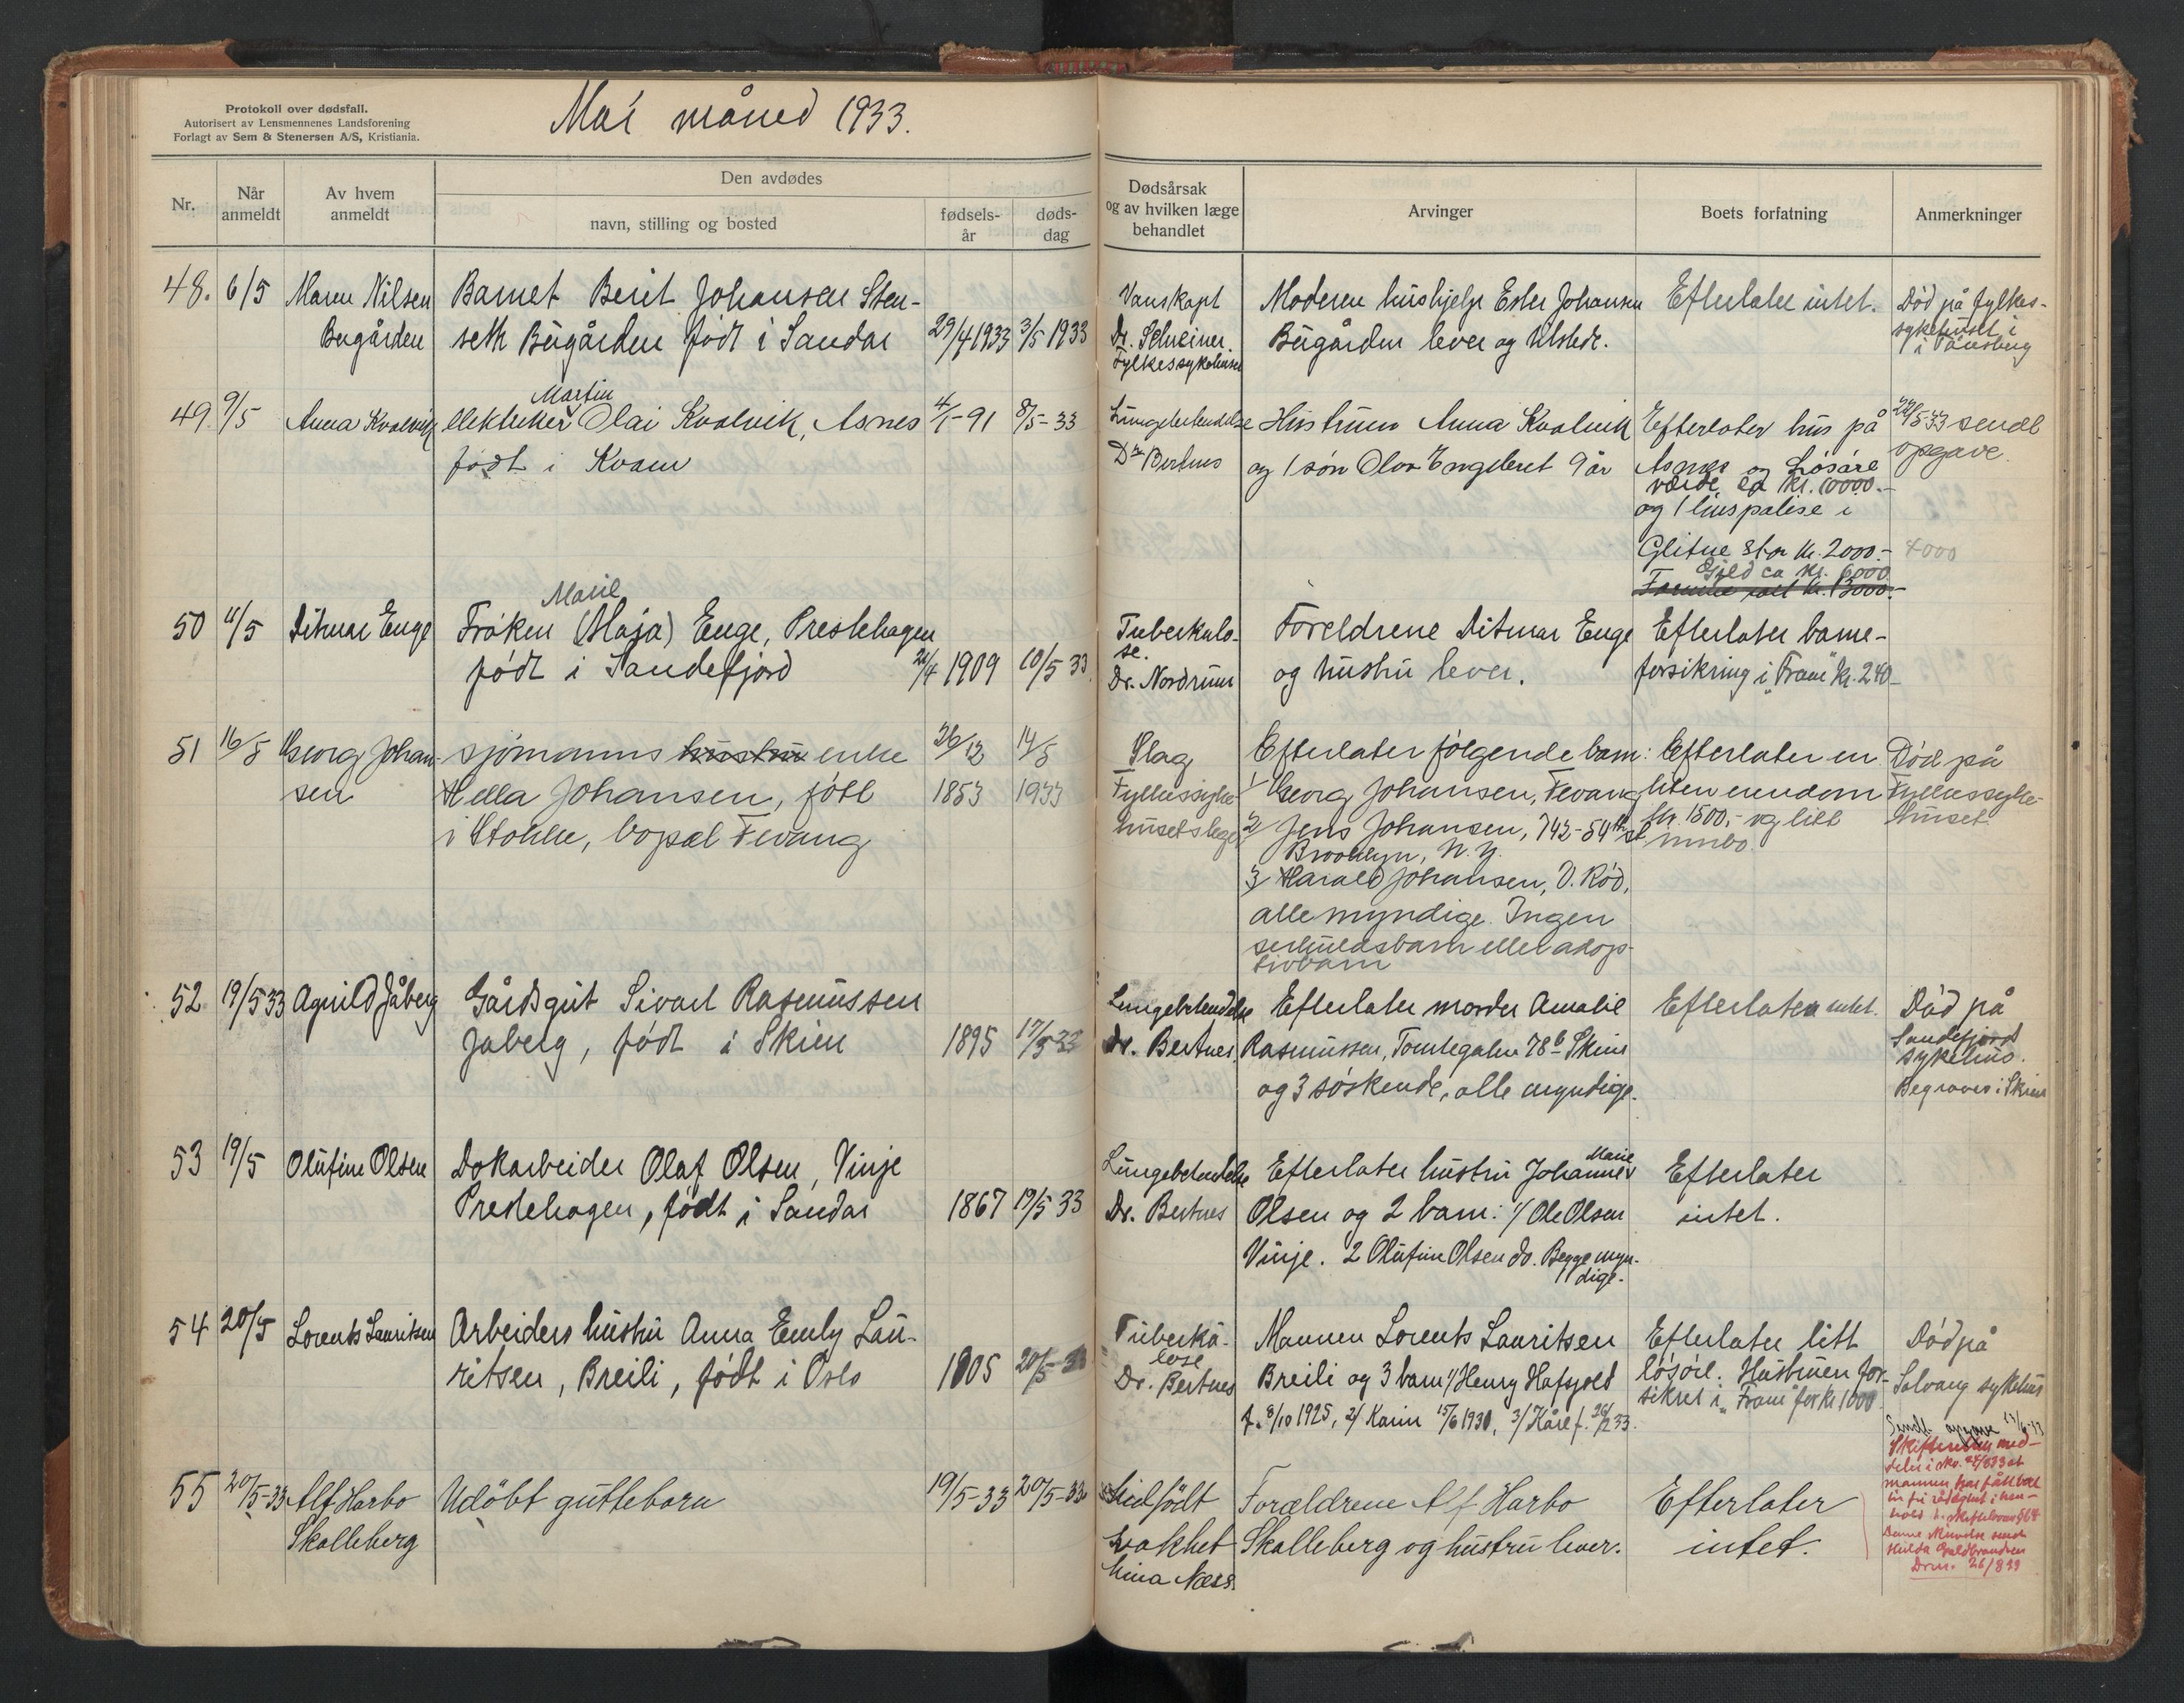 Protokoll over dødsfall.
Autorisert av Lensmennenes Landsforening
Forlagt av Sem & Stenersen A/S, Kristiania.
Mai måned 1933.
Nr.
Når anmeldt
Av hvem anmeldt
Den avdødes
navn, stilling og bosted
fødsels-år
døds-dag
Dødsårsak og av hvilken læge behandlet
Arvinger
Boets forfatning
Anmerkninger
48. 6/5 Maren Nilsen Barnet Berit Johansen Sten-
Bugården seth Bugården født i Sandar 29/4 1933 3/5 1933
Vanskapt Moderen hushjelp Ester Johansen Efterlater intet. Død på fylkes-
Dr. Schreiner Bugården lever og tilstede. sykehuset i
Fylkessykehuset i Tønsberg
49. 9/5 Anna Kvalvik elektriker Martin Olai Kvalvik, Asnes 4/1-91 8/5-33
født i Kvam
Lungebetendelse Hustruen Anna Kvalvik Efterlater hus på 22/5-33 sendt
Dr Bertnes og 1 søn Olav Engebret 9 år Asnes og Løsøre opgave.
værdi ca kr. 10000.-
og 1 livspolise i
Glitne stor kr. 2000.- 4000
Gjeld ca kr. 6000
Formue kr. 13000.-
50 11/5 Ditmar Enge Frøken Marie (Maja) Enge, Prestehagen
født i Sandefjord 24/4 1909 10/5 33
Tuberkulo- Foreldrene Ditmar Enge Efterlater barne-
se.
Dr. Nordrum og hustru lever. forsikring i "Fram" kr. 240-
51 16/5 Georg Johan- sjømanns hustru enke 26/12 14/5
sen Hella Johansen, født 1853 1933
i Stokke, bopæl Fevang
Slag Efterlater følgende barn: Efterlater en Død på
Fylkessyke- 1/ Georg Johansen, Fevang liten eiendom Fylkessyke-
husets læge 2/ Jens Johansen, 742-54th st kr. 1500,- og litt huset.
Brooklyn, N.Y. innbo.
3/ Harald Johansen, V. Rød,
alle myndige. Ingen
særkuldsbarn eller adop-
tivbarn
52 19/5 33 Agnild Jåberg Gårdsgut Sivart Rasmussen
Jaberg, født i Skien 1895 17/5-33
Lungebetendelse Efterlater moder Amalie Efterlater intet. Død på
Dr. Bertnes Rasmussen, Tomtegaten 78b Skien Sandefjord
sykehus.
og 3 søskende, alle myndige. Begraves i Skien
53 19/5 Olufine Olsen Dokarbeider Olaf Olsen, Vinje
Prestehagen, født i Sandar 1867 19/5 33
Lungebetendelse Efterlater hustru Johanne Marie Efterlater
Dr. Bertnes Olsen og 2 barn: 1/ Ole Olsen intet.
Vinje. 2 Olufine Olsen do. Begge myn-
dige.
54 20/5 Lorents Lauritsen Arbeiders hustru Anna Emely Lau-
ritsen, Breili, født i Oslo 1905 20/5-33
Tuberku- Mannen Lorents Lauritsen Efterlater litt Død på
lose
Dr. Bertnes Breili og 3 barn 1/ Henry Hafsjold løsøre. Hustruen for- Solvang sykehus
f. 8/10 1925, 2/ Karin 15/6 1930, 3/ Kåre f. 26/2 33. sikret i "Fram" for kr 1000
Sendt opgave
Skifteretten med-
deler i skr. at
mannen har fått
Denne sendt
Hulda Guldbrandsen
55 20/5-33 Alf Harbo Udöbt guttebarn 19/5-33 20/5-33
Skolleberg
Medfödt Forældrene Alf Harbo Efterlater
svakhet Skalleberg og hustru lever. intet.
Lina Næss